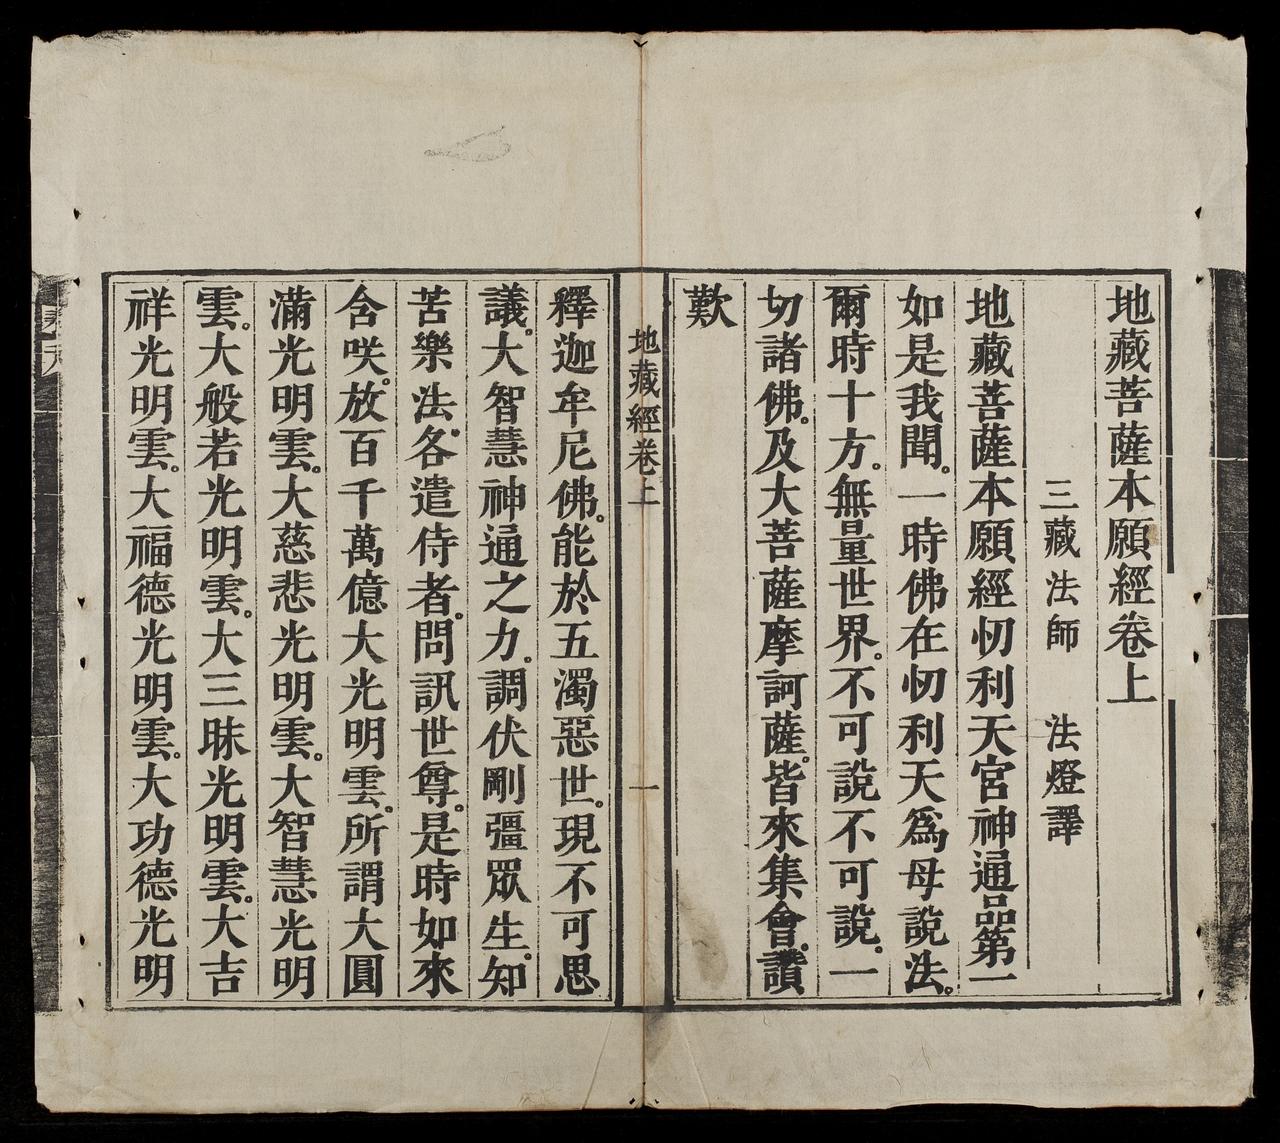 地藏菩薩本願經卷上
三藏法師　法燈譯
地藏菩薩本願經忉利天宮神通品第一
如是我聞。一時佛在忉利天爲母說法。
爾時十方。無量世界。不可說不可說。一
切諸佛。及大菩薩摩訶薩。皆來集會。讚
歎
地藏經卷上　一
釋迦牟尼佛。能於五濁惡世。現不可思
議。大智慧神通之力。調伏剛彊眾生。知
苦樂法。各遣侍者。問訊世尊。是時如來
含咲。放百千萬億大光明雲。所謂大圓
滿光明雲。大慈悲光明雲。大智慧光明
雲。大般若光明雲。大三昧光明雲。大吉
祥光明雲。大福德光明雲。大功德光明